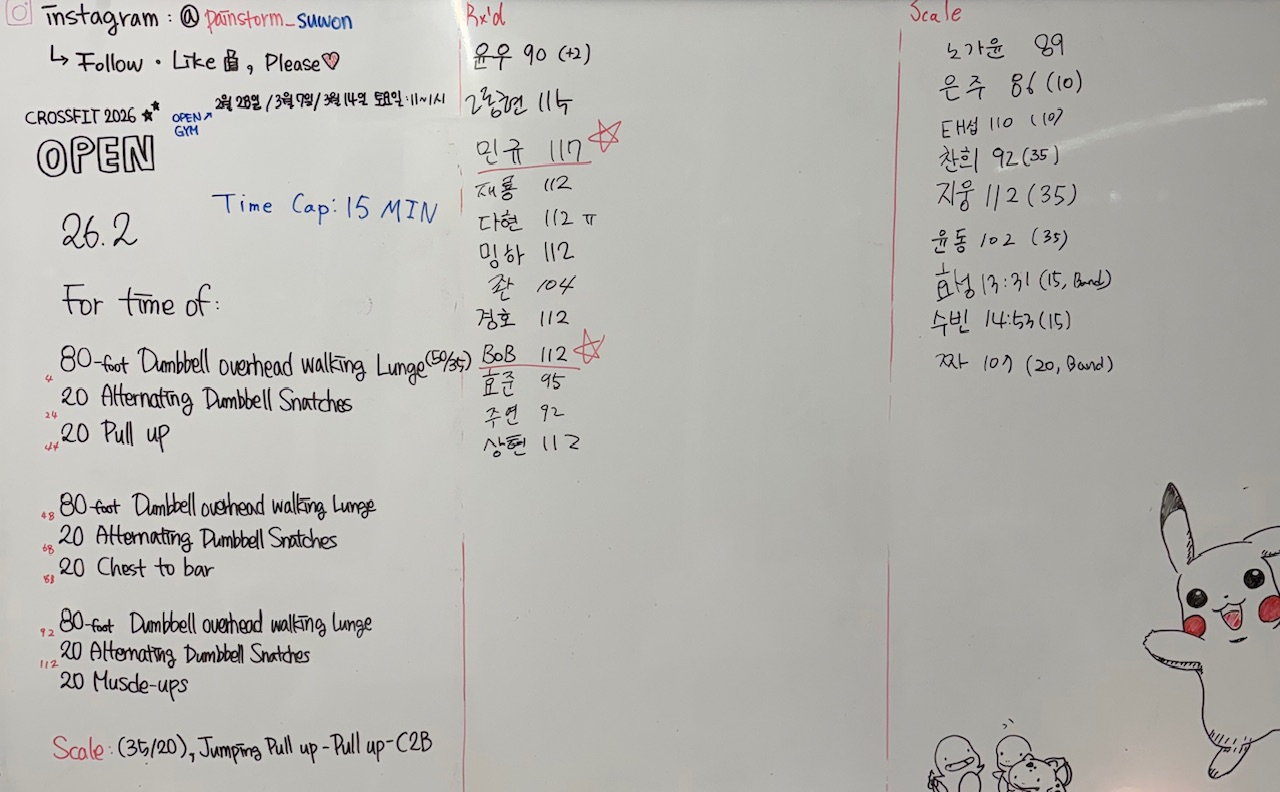 instagram : @ painstorm_suwon
↳ Follow · Like , Please♡
CROSSFIT 2026
OPEN
OPEN GYM ↗ 2월 28일 / 3월 7일 / 3월 14일 토요일 : 11~1시
26.2
Time Cap: 15 MIN
For time of:
80-foot Dumbbell overhead walking Lunge (50/35)
4
20 Alternating Dumbbell Snatches
24
20 Pull up
44
48 80-foot Dumbbell overhead walking Lunge
68 20 Alternating Dumbbell Snatches
88 20 Chest to bar
92 80-foot Dumbbell overhead walking Lunge
112 20 Alternating Dumbbell Snatches
20 Muscle-ups
Scale: (35/20), Jumping Pull up - Pull up - C2B
Rx'd
윤우 90 (+2)
114
민규 117
재룡 112
다현 112 ㅠ
밍하 112
104
경호 112
BoB 112
효준 95
주연 92
상현 112
Scale
노가윤 89
은주 86 (10)
태섭 110 (10)
찬희 92 (35)
지웅 112 (35)
윤동 102 (35)
효성 13:31 (15, Band)
수빈 14:53 (15)
짜 107 (20, Band)